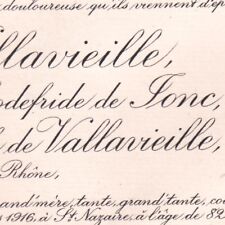 douloureuse qu'ils viennent d'ép
llavieille,
odefride de Jonc,
l de Vallavieille,
Rhône,
and'mère, tante, grand'tante, cou
1916, à St Nazaire, à l'âge de 82